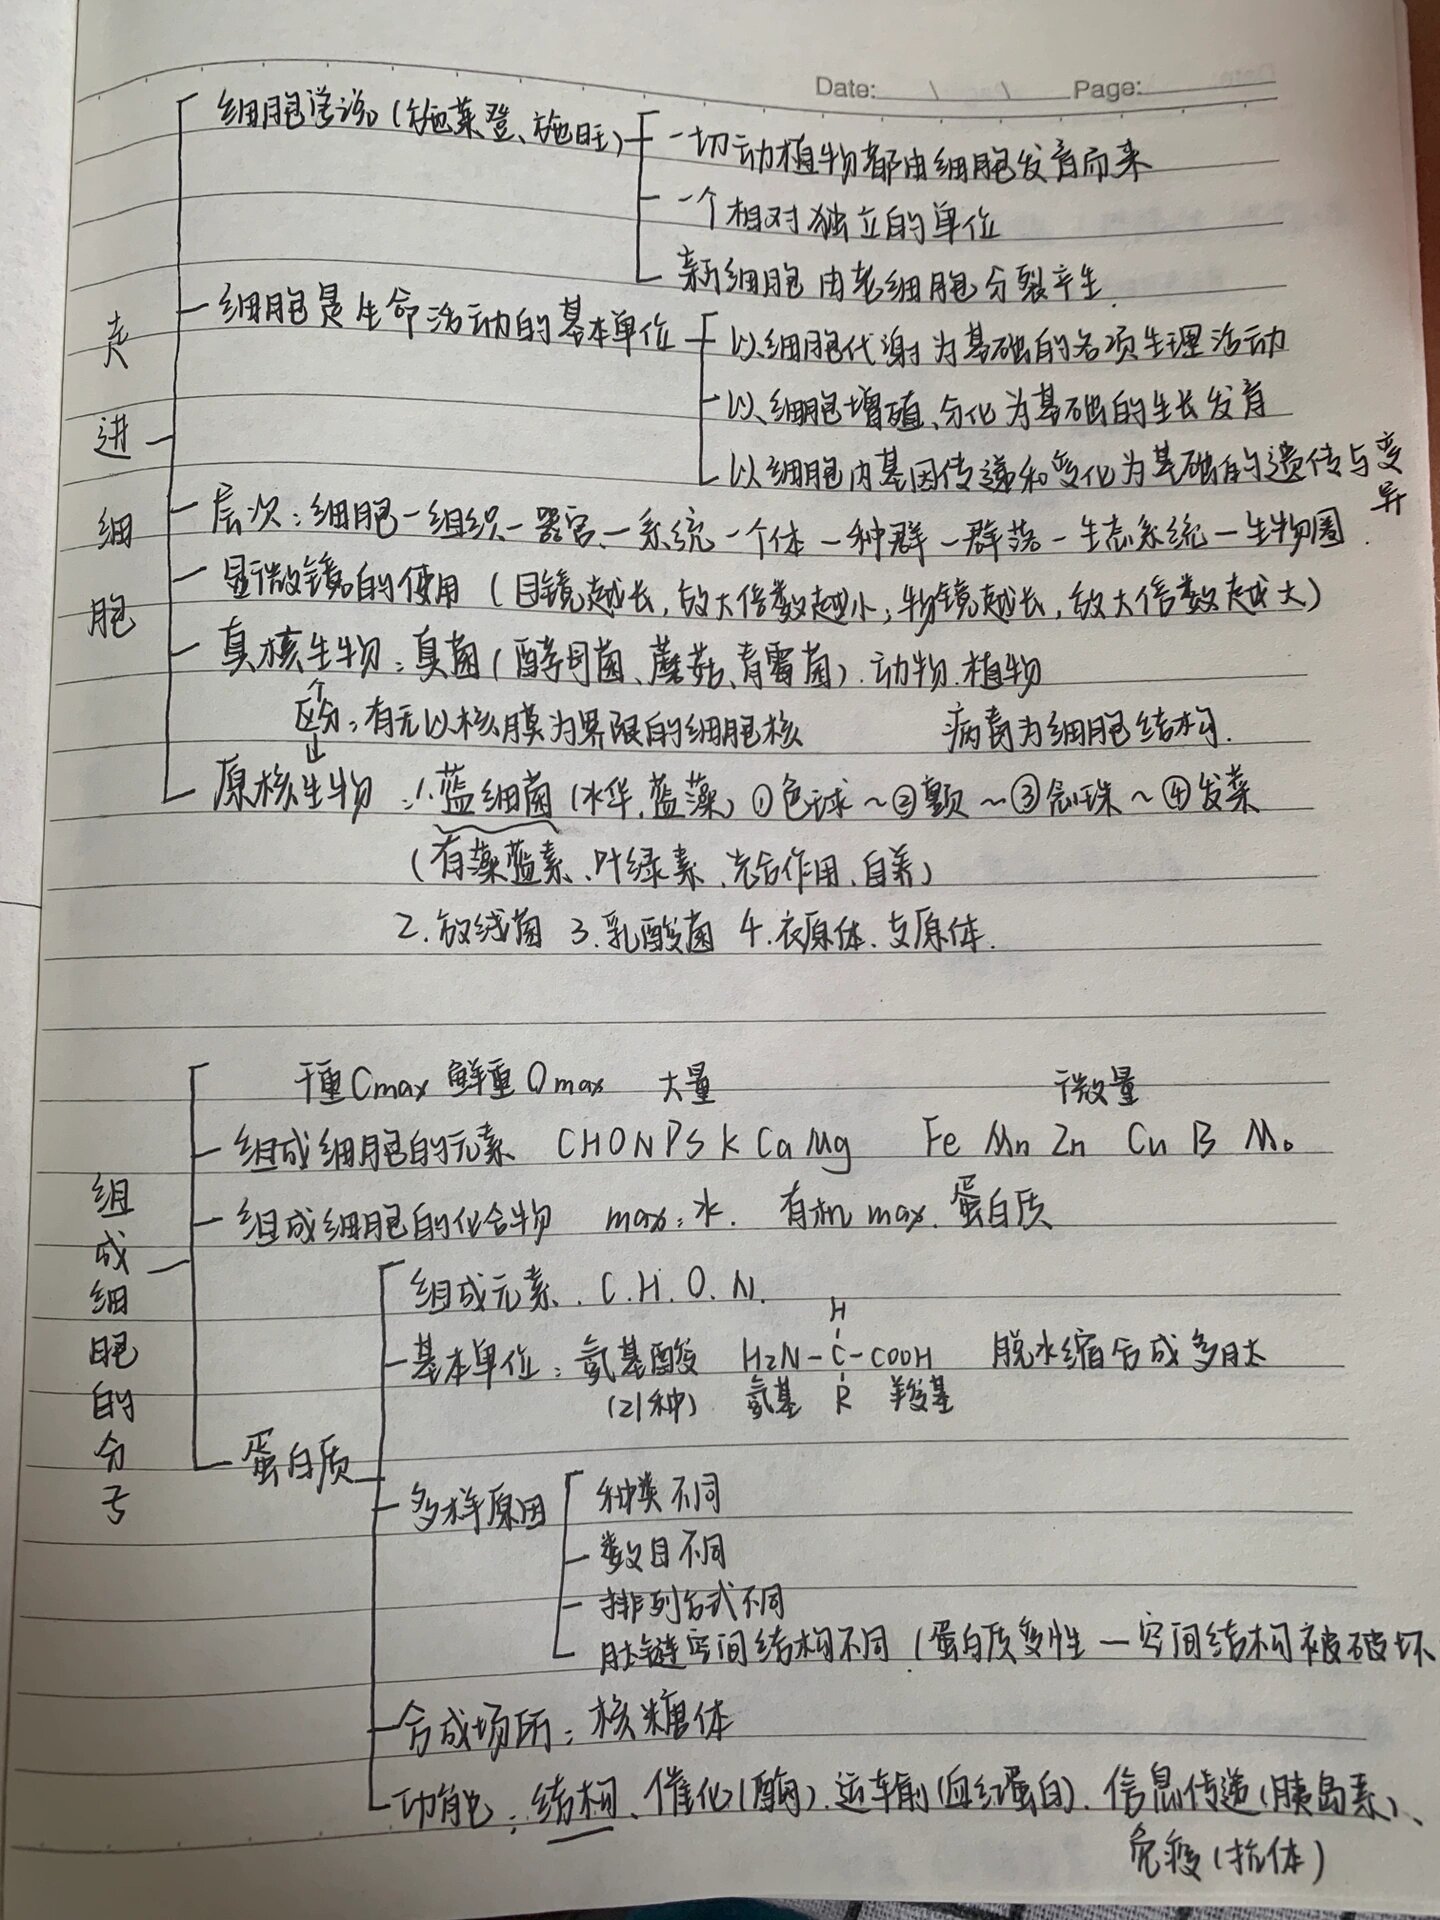 Date: \ \ Page:
走进细胞
细胞学说(施莱登、施旺)
一切动植物都由细胞发育而来
一个相对独立的单位
新细胞由老细胞分裂产生.
细胞是生命活动的基本单位
以细胞代谢为基础的各项生理活动
以细胞增殖、分化为基础的生长发育
以细胞内基因传递和变化为基础的遗传与变异
层次:细胞—组织—器官—系统—个体—种群—群落—生态系统—生物圈.
显微镜的使用(目镜越长,放大倍数越小;物镜越长,放大倍数越大)
真核生物:真菌(酵母菌、蘑菇、青霉菌).动物.植物
区分:有无以核膜为界限的细胞核 病毒为细胞结构.
原核生物:1.蓝细菌(水华,蓝藻)①色球~②颤~③念珠~④发菜
(有藻蓝素、叶绿素、光合作用、自养)
2.放线菌 3.乳酸菌 4.衣原体.支原体.
组成细胞的分子
干重Cmax 鲜重Omax 大量 微量
组成细胞的元素 CHONPSKCaMg Fe Mn Zn Cu B Mo
组成细胞的化合物 max:水. 有机max.蛋白质
蛋白质
组成元素.C.H.O.N.
H
基本单位:氨基酸 H2N-C-COOH 脱水缩合成多肽
(21种) 氨基 R 羧基
多样原因
种类不同
数目不同
排列方式不同
肽链空间结构不同(蛋白质变性—空间结构被破坏
合成场所:核糖体
功能:结构、催化(酶).运输(血红蛋白).信息传递(胰岛素)、
免疫(抗体)